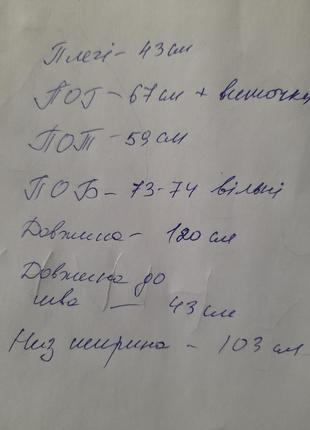 Плечі - 43 см
ПОГ - 67 см + виточки
ПОТ - 59 см
ПОБ - 73-74 вільні
Довжина - 120 см
Довжина до
шва - 43 см
Низ ширина - 103 см